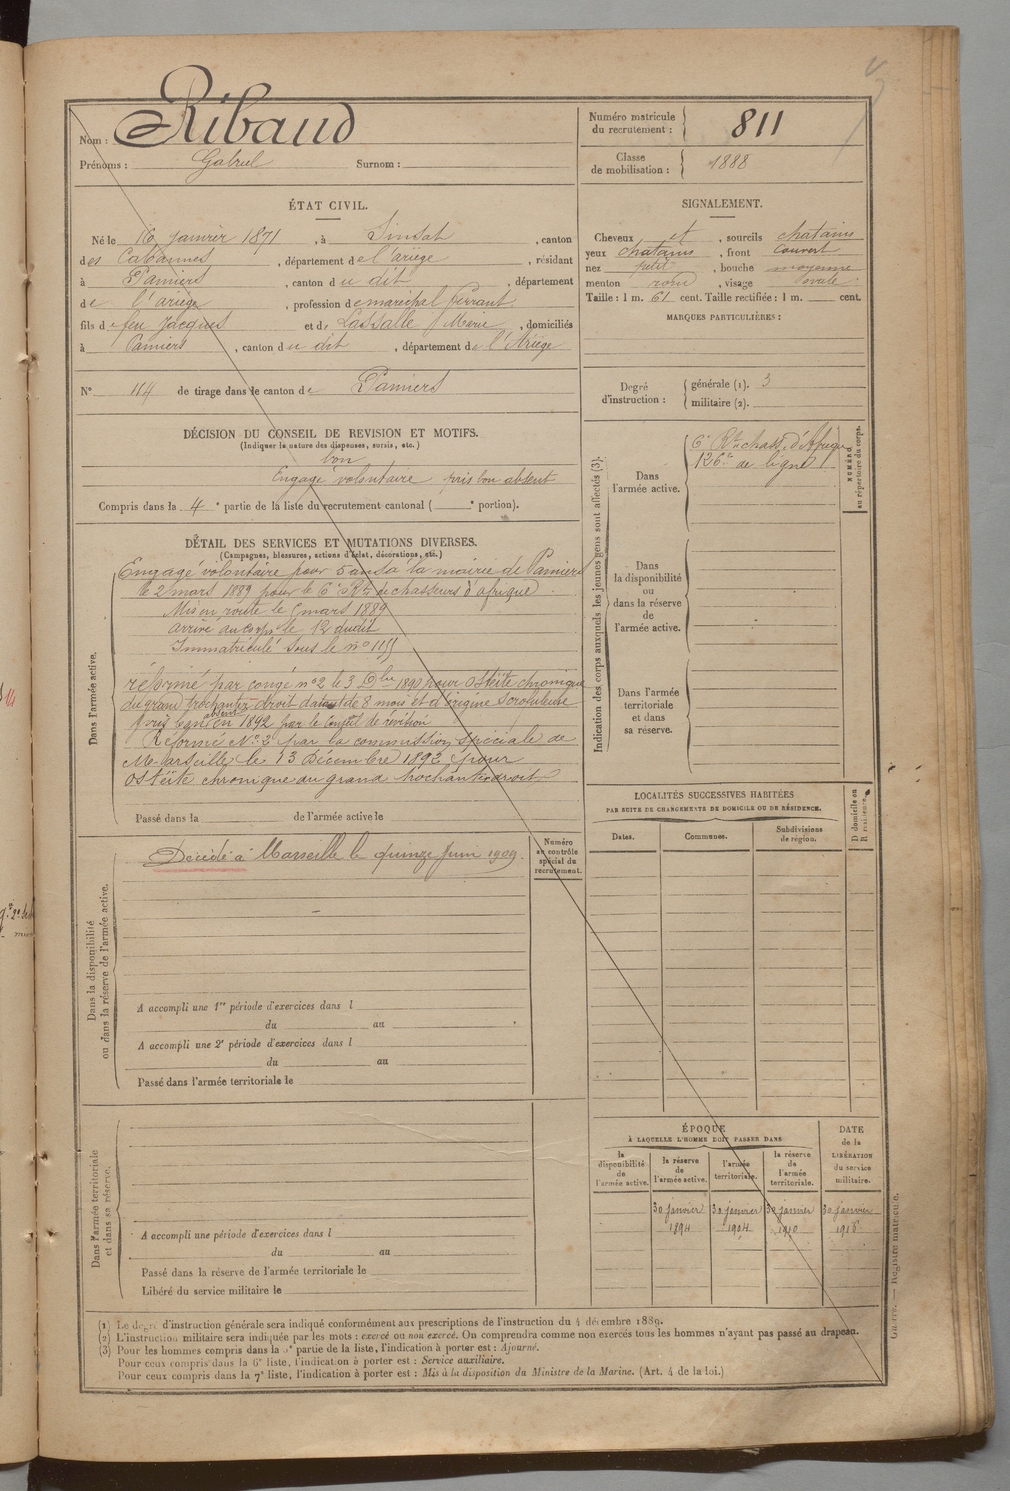 Nom : Ribaud
Prénoms : Gabriel Surnom :
Numéro matricule
du recrutement : 811
Classe
de mobilisation : 1888
ÉTAT CIVIL.
Né le 16 janvier 1871, à Sinsat, canton
des Cabannes, département de l'ariège, résidant
à Pamiers, canton du dit, département
de l'ariège, profession de maréchal ferrant
fils de feu Jacques et de Lassalle Marie, domiciliés
à Pamiers, canton du dit, département de l'Ariège
SIGNALEMENT.
Cheveux et, sourcils chatains
yeux chatains, front couvert
nez petit, bouche moyenne
menton rond, visage ovale
Taille : 1 m. 61 cent. Taille rectifiée : 1 m. cent.
MARQUES PARTICULIÈRES :
N° 114 de tirage dans le canton de Pamiers
Degré
d'instruction :
générale (1). 3
militaire (2).
DÉCISION DU CONSEIL DE REVISION ET MOTIFS.
(Indiquer la nature des dispenses, sursis, etc.)
bon
Engagé volontaire pris bon absent
Compris dans la 4e partie de la liste du recrutement cantonal ( e portion).
DÉTAIL DES SERVICES ET MUTATIONS DIVERSES.
(Campagnes, blessures, actions d'éclat, décorations, etc.)
Dans l'armée active.
Engagé volontaire pour 5 ans à la mairie de Pamiers
le 2 mars 1889 pour le 6e Rt de chasseurs d'afrique.
Mis en route le mars 1889
arrivé au corps le 12 dudit
Immatriculé sous le n° 1155
réformé par congé n° 2 le 3 Dbre 1890 pour Ostéite chronique
du grand trochanter droit datant de 8 mois et d'origine scrofuleuse
pris bon absent en 1892 par le Conseil de révision
Réformé N° 2 par la commission spéciale de
Marseille le 13 Décembre 1892 pour
ostéite chronique du grand trochanter droit
Passé dans la de l'armée active le
Indication des corps auxquels les jeunes gens sont affectés (3).
Dans
l'armée active.
6e Rt chass. d'Afrique
126e de ligne
NUMÉRO
au répertoire du corps.
Dans
la disponibilité
ou
dans la réserve
de
l'armée active.
Dans l'armée
territoriale
et dans
sa réserve.
LOCALITÉS SUCCESSIVES HABITÉES
PAR SUITE DE CHANGEMENTS DE DOMICILE OU DE RÉSIDENCE.
Dates. Communes. Subdivisions
de région.
D domicile ou
R résidence.
Dans la disponibilité
ou dans la réserve de l'armée active.
Décédé à Marseille le quinze Juin 1909.
Numéro
au contrôle
spécial du
recrutement.
A accompli une 1re période d'exercices dans l
du au
A accompli une 2e période d'exercices dans l
du au
Passé dans l'armée territoriale le
Dans l'armée territoriale
et dans sa réserve.
A accompli une période d'exercices dans l
du au
Passé dans la réserve de l'armée territoriale le
Libéré du service militaire le
ÉPOQUE
À LAQUELLE L'HOMME DOIT PASSER DANS
la
disponibilité
de
l'armée active.
la réserve
de
l'armée active.
l'armée
territoriale.
la réserve
de
l'armée
territoriale.
DATE
de la
LIBÉRATION
du service
militaire.
30 janvier 30 janvier 30 janvier 30 janvier
1894 1904 1910
Guerre. — Registre matricule.
(1) Le degré d'instruction générale sera indiqué conformément aux prescriptions de l'instruction du 4 décembre 1889.
(2) L'instruction militaire sera indiquée par les mots : exercé ou non exercé. On comprendra comme non exercés tous les hommes n'ayant pas passé au drapeau.
(3) Pour les hommes compris dans la 5e partie de la liste, l'indication à porter est : Ajourné.
Pour ceux compris dans la 6e liste, l'indication à porter est : Service auxiliaire.
Pour ceux compris dans la 7e liste, l'indication à porter est : Mis à la disposition du Ministre de la Marine. (Art. 4 de la loi.)